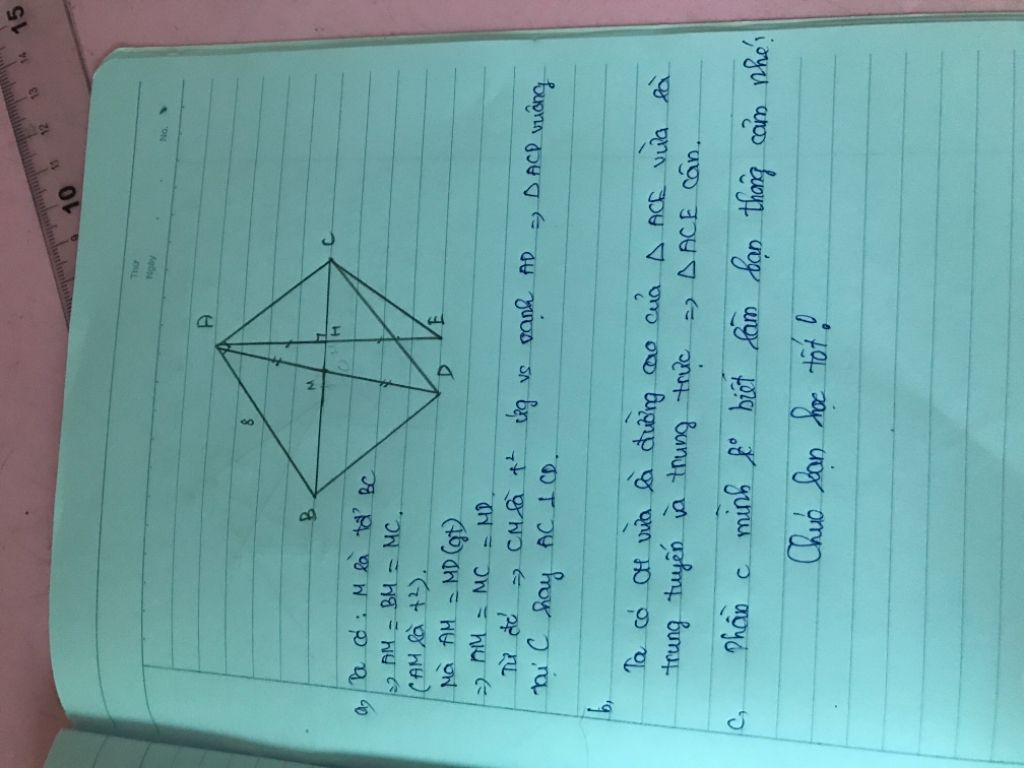 Thứ
Ngày
No.
A
8
B
M
H
C
D
E
a, Ta có : M là tđ' BC
=> AM = BM = MC.
(AM là t²).
Mà AM = MD (gt)
=> AM = MC = MD.
Từ đó => CM là t² ứg vs cạnh AD => Δ ACD vuông
tại C hay AC ⊥ CD.
b,
Ta có CH vừa là đường cao của Δ ACE vừa là
trung tuyến và trung trực => Δ ACE cân.
c, Phần c mình k° biết làm bạn thông cảm nhé!
Chúc bạn học tốt!
15
14
13
12
11
10
9